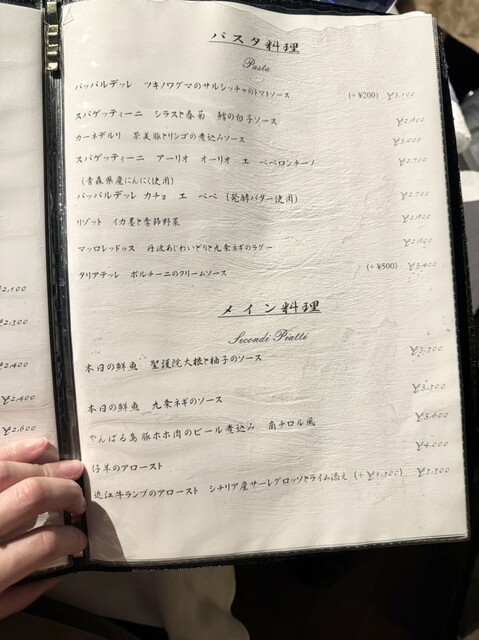 パスタ料理
Pasta
パッパルデッレ　ツキノワグマのサルシッチャのトマトソース　(+¥200)
スパゲッティーニ　シラスと春菊　鱈の白子ソース
カーネデルリ　茶美豚とリンゴの煮込みソース　¥3,000
スパゲッティーニ　アーリオ　オーリオ　エ　ペペロンチーノ
(青森県産にんにく使用)
パッパルデッレ カチョ　エ　ペペ　(発酵バター使用)　¥2,700
リゾット　イカ墨と季節野菜
マッロレッドゥス　丹波あじわいどりと九条ネギのラグー
タリアテッレ　ポルチーニのクリームソース　(+¥500)　¥3,400
メイン料理
Secondi Piatti
本日の鮮魚　聖護院大根と柚子のソース　¥3,500
本日の鮮魚　九条ネギのソース　¥3,500
やんばる島豚ホホ肉のビール煮込み　南チロル風　¥3,600
仔羊のアロースト　¥4,000
近江牛ランプのアロースト　シチリア産サーレグロッソとライム添え　¥5,500
¥2,300
¥2,400
¥2,400
¥2,600